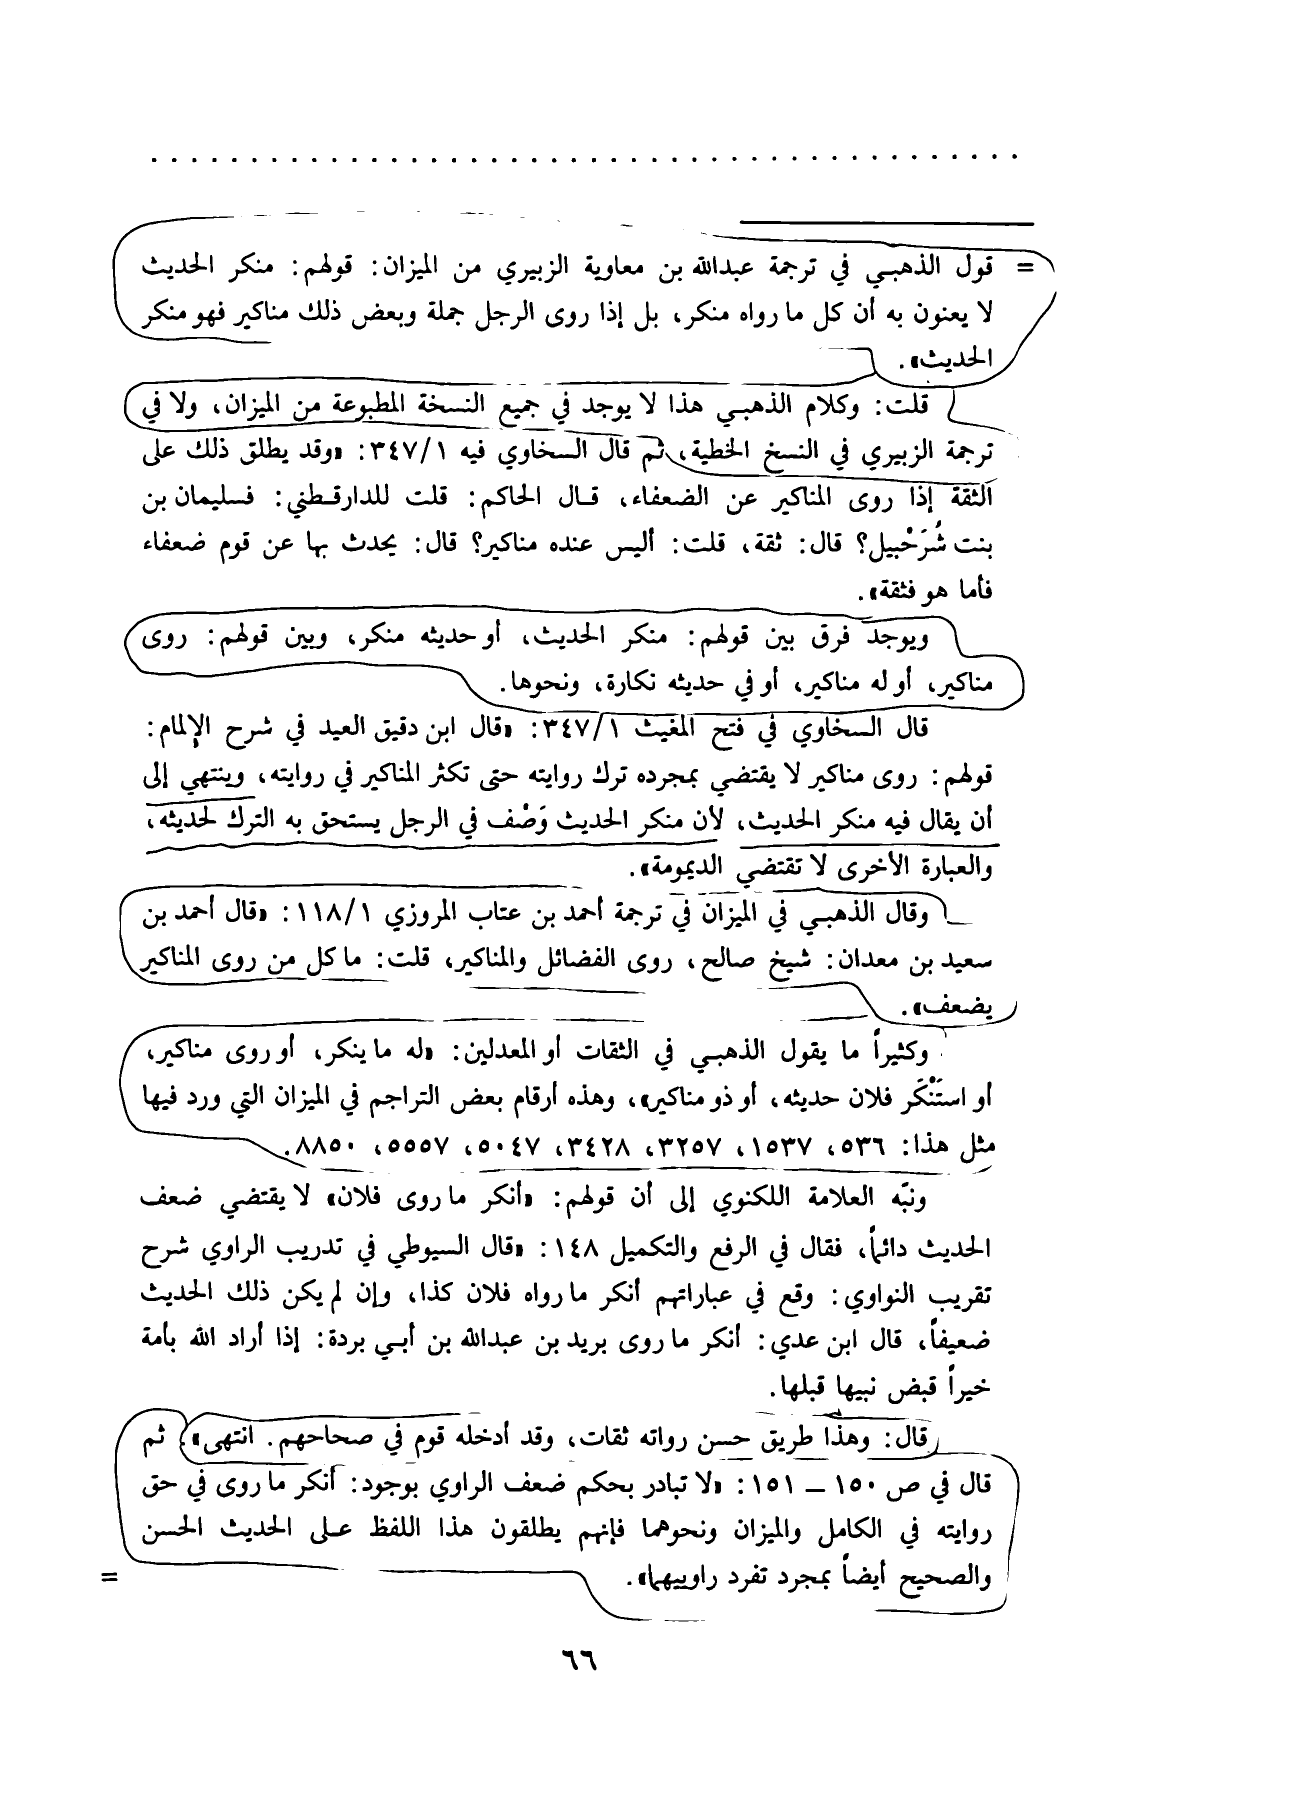 = قول الذهبي في ترجمة عبدالله بن معاوية الزبيري من الميزان: قولهم: منكر الحديث
لا يعنون به أن كل ما رواه منكر، بل إذا روى الرجل جملة وبعض ذلك مناكير فهو منكر
الحديث».
قلت: وكلام الذهبي هذا لا يوجد في جميع النسخة المطبوعة من الميزان، ولا في
ترجمة الزبيري في النسخ الخطية، ثم قال السخاوي فيه ٣٤٧/١: «وقد يطلق ذلك على
الثقة إذا روى المناكير عن الضعفاء، قال الحاكم: قلت للدارقطني: فسليمان بن
بنت شُرَحْبيل؟ قال: ثقة، قلت: أليس عنده مناكير؟ قال: يحدث بها عن قوم ضعفاء
فأما هو فثقة».
ويوجد فرق بين قولهم: منكر الحديث، أو حديثه منكر، وبين قولهم: روى
مناكير، أو له مناكير، أو في حديثه نكارة، ونحوها.
قال السخاوي في فتح المغيث ٣٤٧/١: «قال ابن دقيق العيد في شرح الإلمام:
قولهم: روى مناكير لا يقتضي بمجرده ترك روايته حتى تكثر المناكير في روايته، وينتهي إلى
أن يقال فيه منكر الحديث، لأن منكر الحديث وَصْف في الرجل يستحق به الترك لحديثه،
والعبارة الأخرى لا تقتضي الديمومة».
وقال الذهبي في الميزان في ترجمة أحمد بن عتاب المروزي ١١٨/١: «قال أحمد بن
سعيد بن معدان: شيخ صالح، روى الفضائل والمناكير، قلت: ما كل من روى المناكير
يضعف».
وكثيراً ما يقول الذهبي في الثقات أو المعدلين: «له ما ينكر، أو روى مناكير،
أو استَنْكَر فلان حديثه، أو ذو مناكير»، وهذه أرقام بعض التراجم في الميزان التي ورد فيها
مثل هذا: ٥٣٦، ١٥٣٧، ٣٢٥٧، ٣٤٢٨، ٥٠٤٧، ٥٥٥٧، ٨٨٥٠.
ونبّه العلامة اللكنوي إلى أن قولهم: «أنكر ما روى فلان» لا يقتضي ضعف
الحديث دائماً، فقال في الرفع والتكميل ١٤٨: «قال السيوطي في تدريب الراوي شرح
تقريب النواوي: وقع في عباراتهم أنكر ما رواه فلان كذا، وإن لم يكن ذلك الحديث
ضعيفاً، قال ابن عدي: أنكر ما روى بريد بن عبدالله بن أبي بردة: إذا أراد الله بأمة
خيراً قبض نبيها قبلها.
قال: وهذا طريق حسن رواته ثقات، وقد أدخله قوم في صحاحهم. انتهى». ثم
قال في ص ١٥٠ – ١٥١: «لا تبادر بحكم ضعف الراوي بوجود: أنكر ما روى في حق
روايته في الكامل والميزان ونحوهما فإنهم يطلقون هذا اللفظ على الحديث الحسن
والصحيح أيضاً بمجرد تفرد راوييهما». =
٦٦